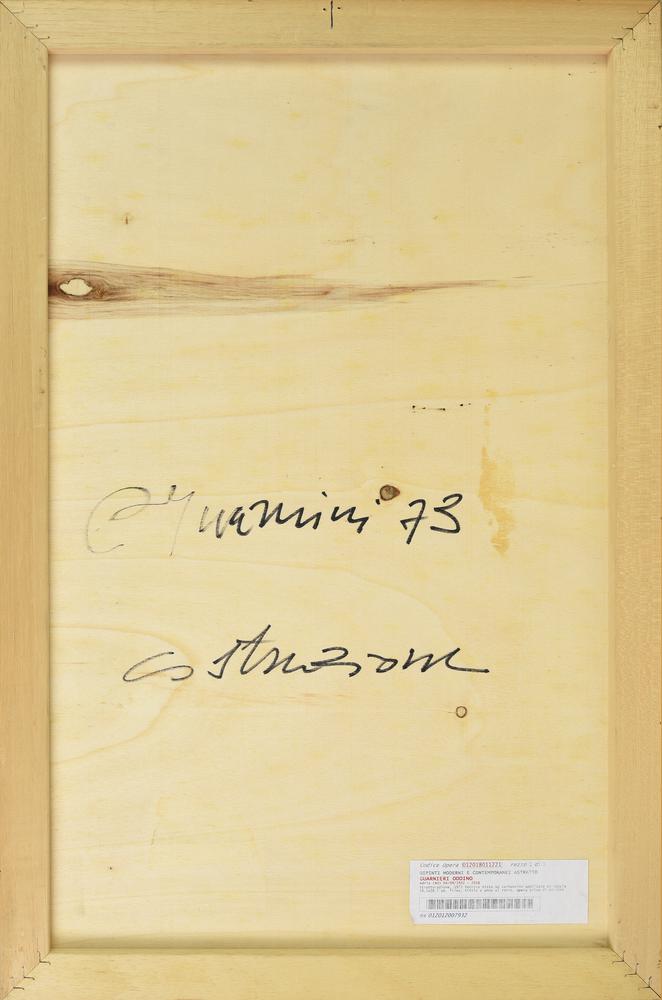 Guarnieri 73
Costruzione
Codice Opera 012018011221 Pezzo 1 di 1
DIPINTI MODERNI E CONTEMPORANEI ASTRATTO
GUARNIERI ODDINO
012012007932